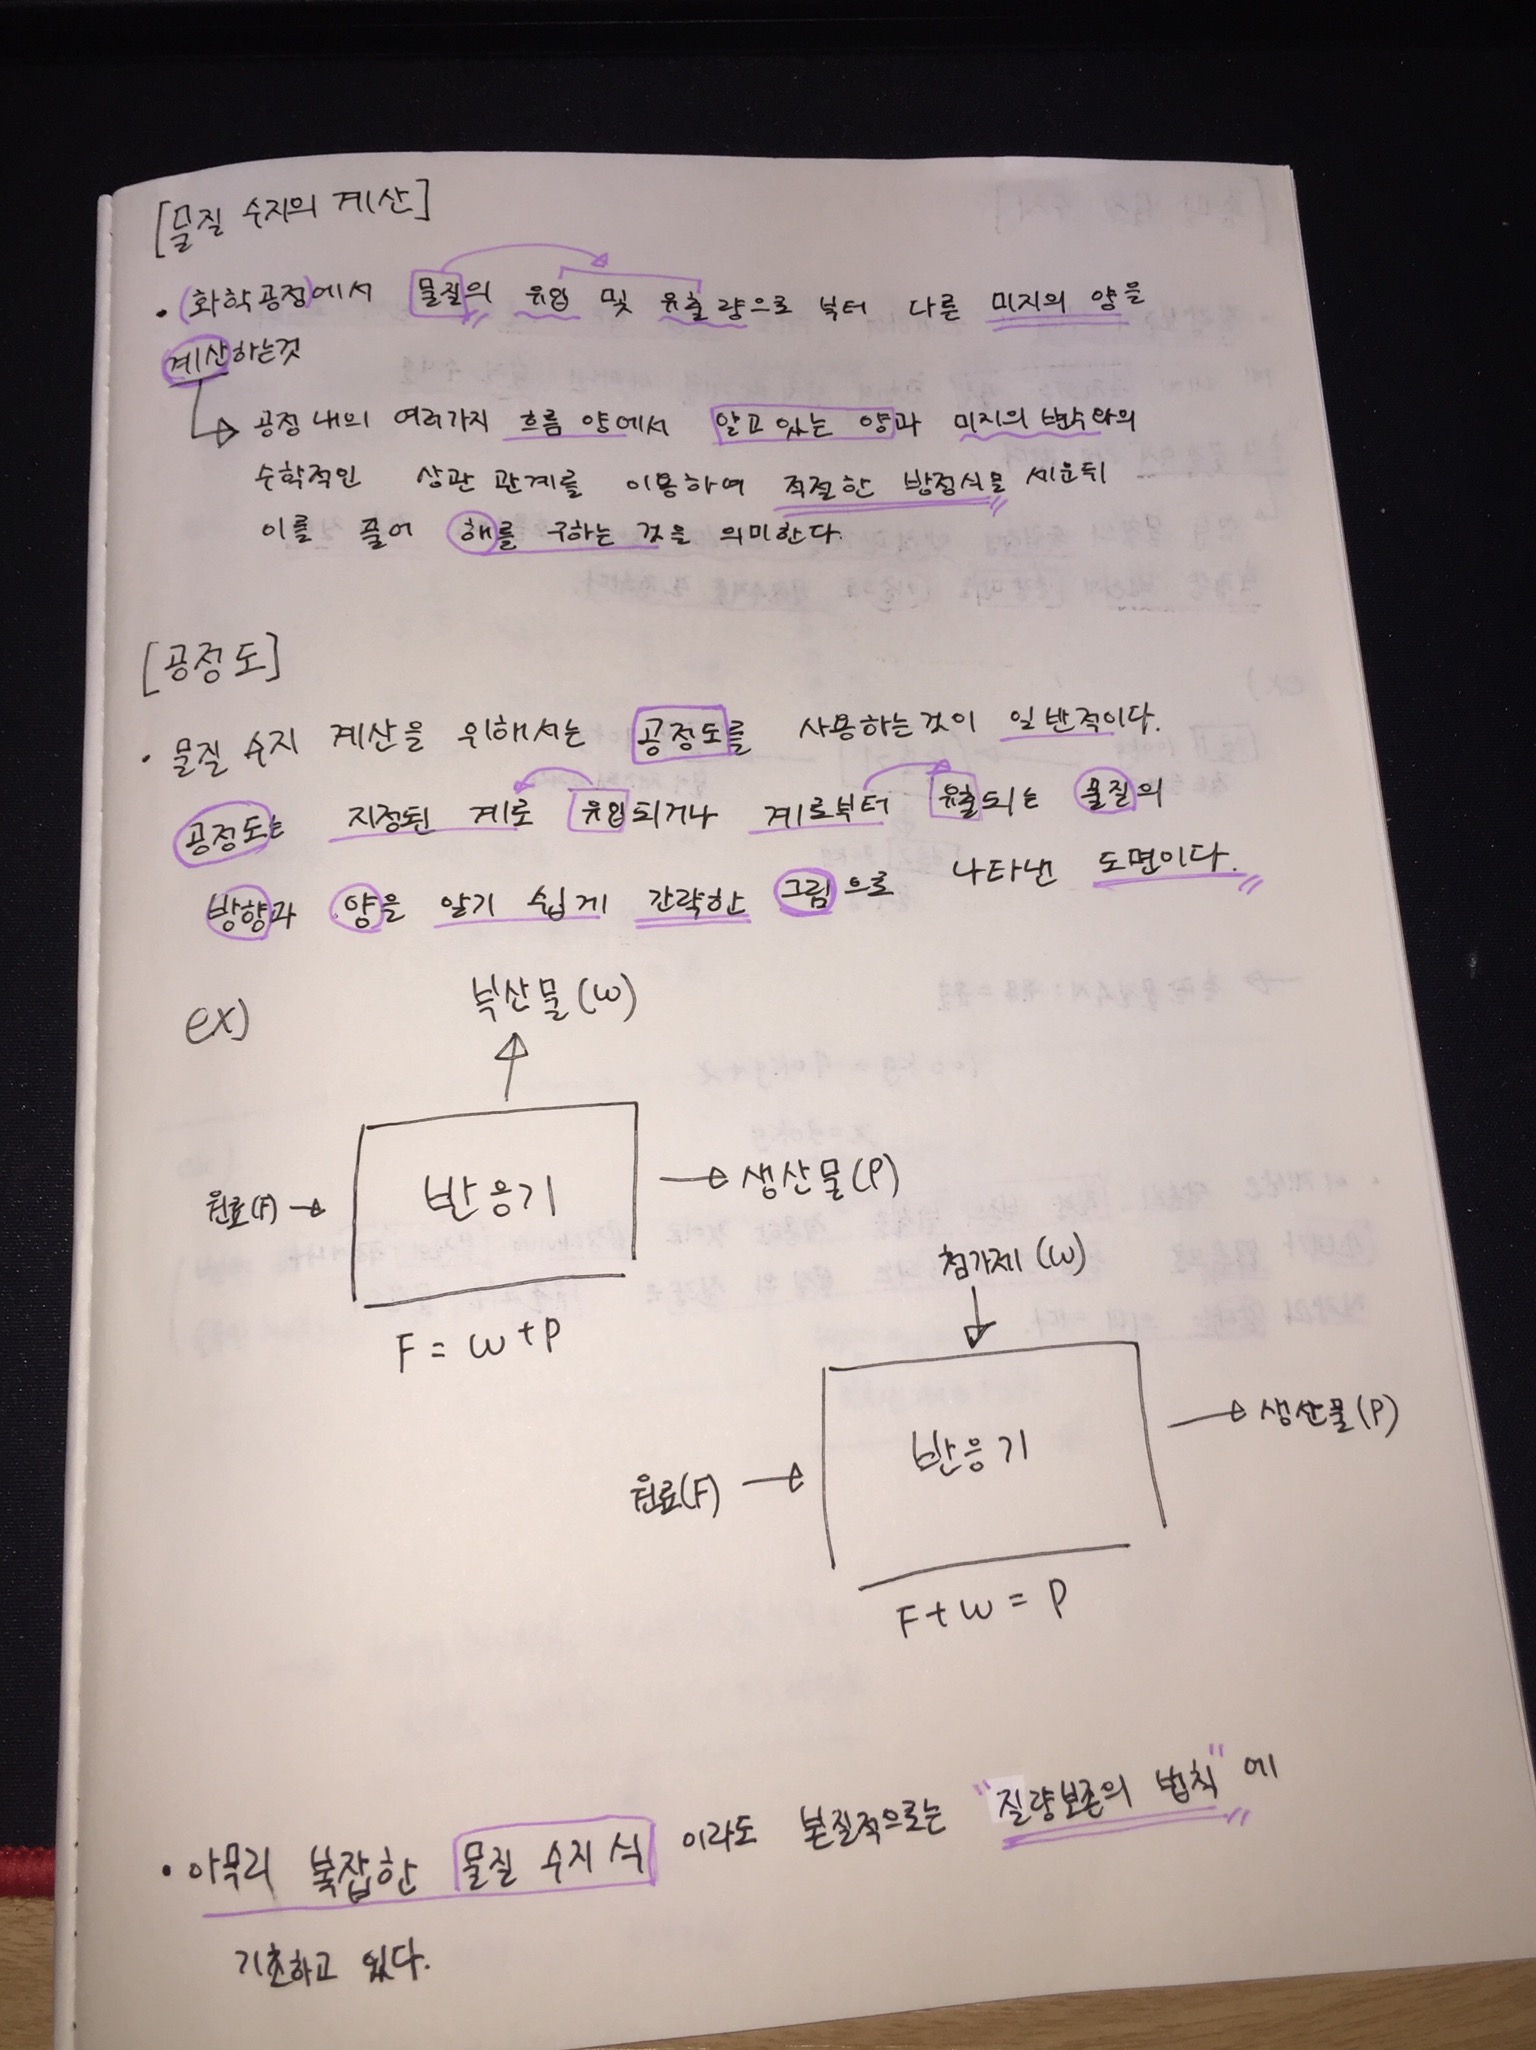 [물질 수지의 계산]
• (화학공정)에서 물질의 유입 및 유출량으로 부터 다른 미지의 양을
계산하는것
→ 공정 내의 여러가지 흐름 양에서 알고있는 양과 미지의 변수와의
수학적인 상관 관계를 이용하여 적절한 방정식을 세운뒤
이를 풀어 해를 구하는 것을 의미한다.
[공정도]
• 물질 수지 계산을 위해서는 공정도를 사용하는것이 일반적이다.
공정도는 지정된 계로 유입되거나 계로부터 유출되는 물질의
방향과 양을 알기 쉽게 간략한 그림으로 나타낸 도면이다.
ex)
부산물(W)
원료(F) → 반응기 → 생산물(P)
F = W + P
첨가제(W)
원료(F) → 반응기 → 생산물(P)
F + W = P
• 아무리 복잡한 물질 수지 식 이라도 본질적으로는 "질량보존의 법칙"에
기초하고 있다.